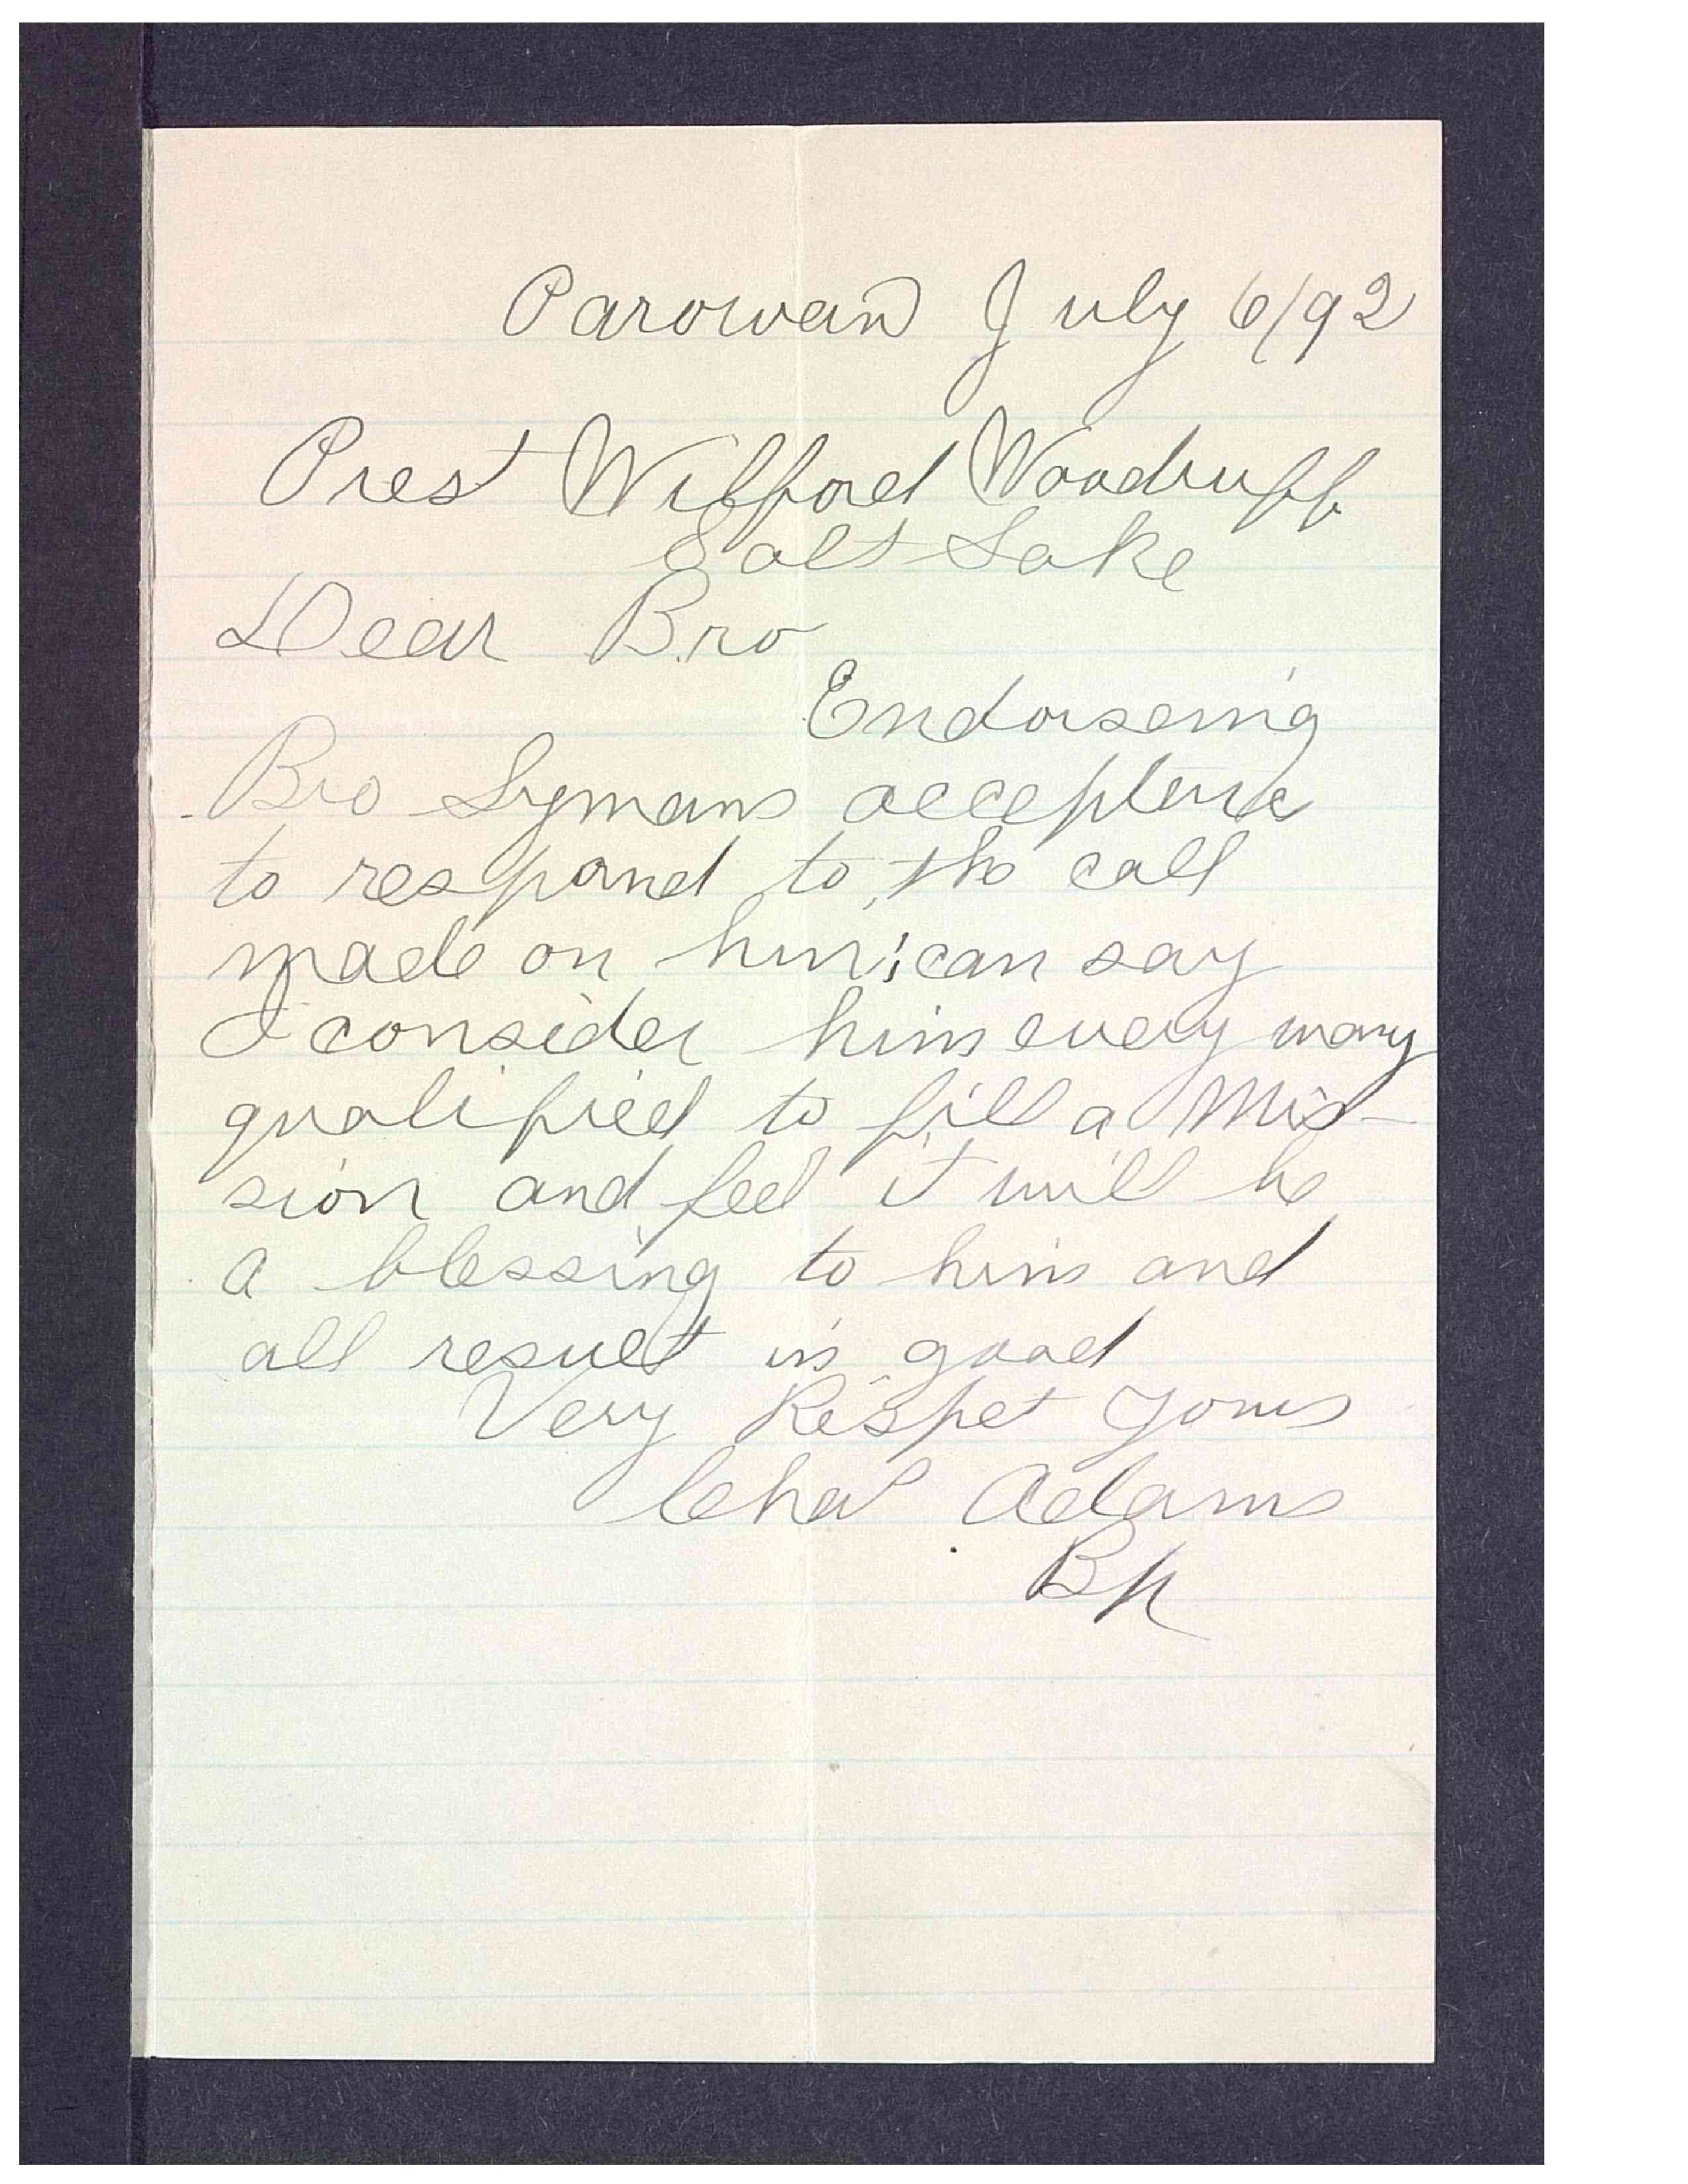 Parowan July 6/92
Prest Wilford Woodruff
Salt Lake
Dear Bro
Endorseing
Bro Lymans
to respond to the call
made on him; can say
I consider him every way
qualified to fill a Mis-
sion and feel it will be
a blessing to him and
all result in good
Very Respet yours
Chas Adams
Bp